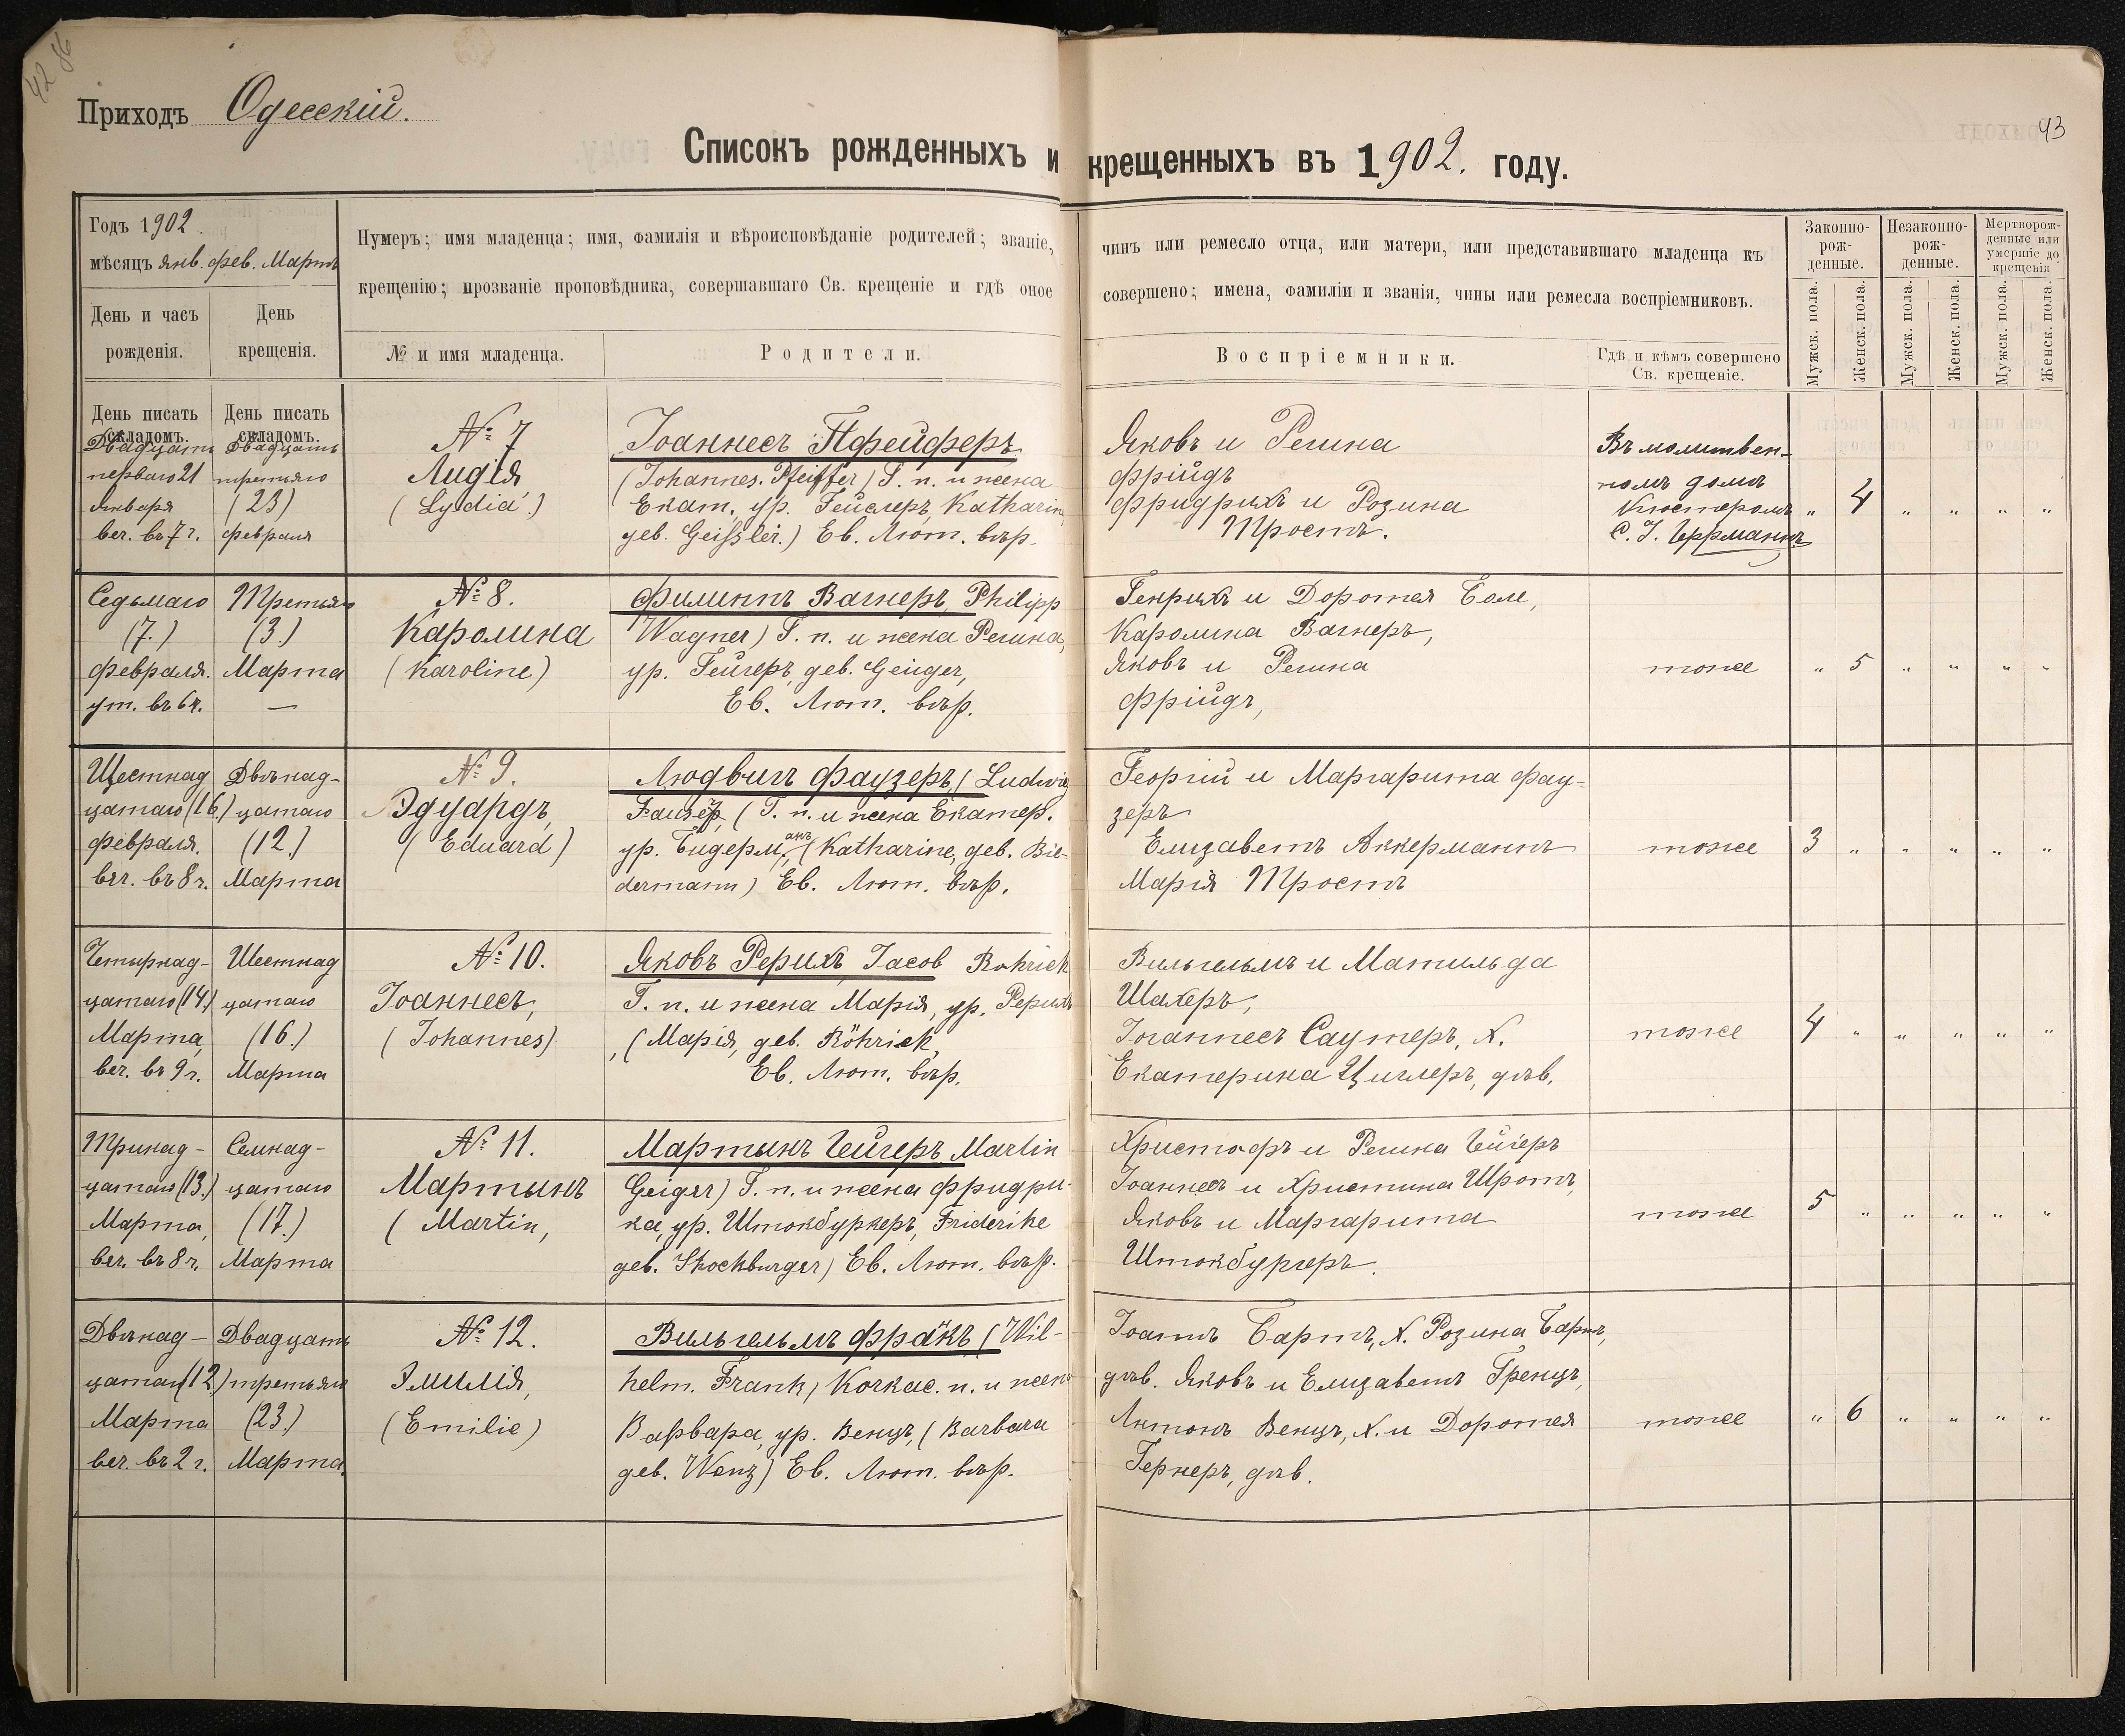 42 86
Приходъ Одесскій.
43
Списокъ рожденныхъ и крещенныхъ въ 1902. году.
Годъ 1902.
мѣсяцъ янв. фев. Мартъ
День и часъ рожденія.
День крещенія.
Нумеръ; имя младенца; имя, фамилія и вѣроисповѣданіе родителей; званіе, чинъ или ремесло отца, или матери, или представившаго младенца къ
крещенію; прозваніе проповѣдника, совершавшаго Св. крещеніе и гдѣ оное совершено; имена, фамиліи и званія, чины или ремесла воспріемниковъ.
№ и имя младенца.
Родители.
Воспріемники.
Гдѣ и кѣмъ совершено
Св. крещеніе.
Законно-
рож-
денные.
Незаконно-
рож-
денные.
Мертворож-
денные или
умершіе до
крещенія
Мужск. пола.
Женск. пола.
Мужск. пола.
Женск. пола.
Мужск. пола.
Женск. пола.
День писать
складомъ.
День писать
складомъ.
Двадцать
перваго 21
Января
веч. въ 7 ч.
Двадцать
третьяго
(23)
февраля
№ 7
Лидія
(Lydia.)
Іоаннесъ Пфейферъ
(Johannes. Pfeiffer) Т. п. и жена
Екат. ур. Гейслеръ, Katharin,
геб. Geißler.) Ев. Лют. вѣр.
Яковъ и Регина
Фрійдъ
Фридрихъ и Розина
Простъ.
Въ молитвен-
номъ домѣ
Кюстеромъ
С. І. Геррманнъ
" 4 " " " "
Седьмаго
(7.)
февраля.
ут. въ 6 ч.
Третьяго
(3.)
Марта
—
№ 8.
Каролина
(Karoline)
Филиппъ Вагнеръ, Philipp
Wagner) Т. п. и жена Регина,
ур. Гейгеръ, геб. Geiger,
Ев. Лют. вѣр.
Генрихъ и Доротея Боле,
Каролина Вагнеръ,
Яковъ и Регина
Фрійдъ,
тоже
" 5 " " " "
Шестнад
цатаго (16.)
февраля.
веч. въ 8 ч.
Двѣнад-
цатаго
(12.)
Марта
№ 9.
Эдуардъ,
(Eduard)
Людвигъ Фаузеръ, (Ludwig
Fauser, (Т. п. и жена Екатер.
ур. Бидерманъ, (Katharine, геб. Bie-
dermann) Ев. Лют. вѣр.
Георгій и Маргарита Фау-
зеръ
Елизаветъ Аккерманнъ
Марія Простъ
тоже
3 " " " " "
Четырнад-
цатаго (14.)
Марта,
веч. въ 9 ч.
Шестнад
цатаго
(16.)
Марта
№ 10.
Іоаннесъ,
(Johannes)
Яковъ Рерихъ, Jacob Rohrich
Т. п. и жена Марія, ур. Рерихъ
, (Марія, геб. Röhrich,
Ев. Лют. вѣр.
Вильгельмъ и Матильда
Шахеръ,
Іоаннесъ Саутеръ, Х.
Екатерина Циглеръ, дѣв.
тоже
4 " " " " "
Тринад-
цатаго (13.)
Марта,
веч. въ 8 ч.
Семнад-
цатаго
(17.)
Марта
№ 11.
Мартынъ
(Martin,
Мартынъ Гейгеръ Martin
Geiger) Т. п. и жена Фридри-
ка, ур. Штокбургеръ, Friderike
геб. Stockburger) Ев. Лют. вѣр.
Христофъ и Регина Гейгеръ
Іоаннесъ и Христина Шротъ,
Яковъ и Маргарита
Штокбургеръ.
тоже
5 " " " " "
Двѣнад-
цатаго (12.)
Марта
веч. въ 2 ч.
Двадцать
третьяго
(23.)
Марта.
№ 12.
Эмилія,
(Emilie)
Вильгельмъ Франкъ (Wil-
helm. Frank) п. и жена
Варвара, ур. Венцъ, (Barbara
геб. Wenz) Ев. Лют. вѣр.
Бартъ, Х. Розина Бартъ,
дѣв. Яковъ и Елизаветъ Гренцъ,
Антонъ Венцъ, Х. и Доротея
Гернеръ, дѣв.
тоже
" 6 " " " "